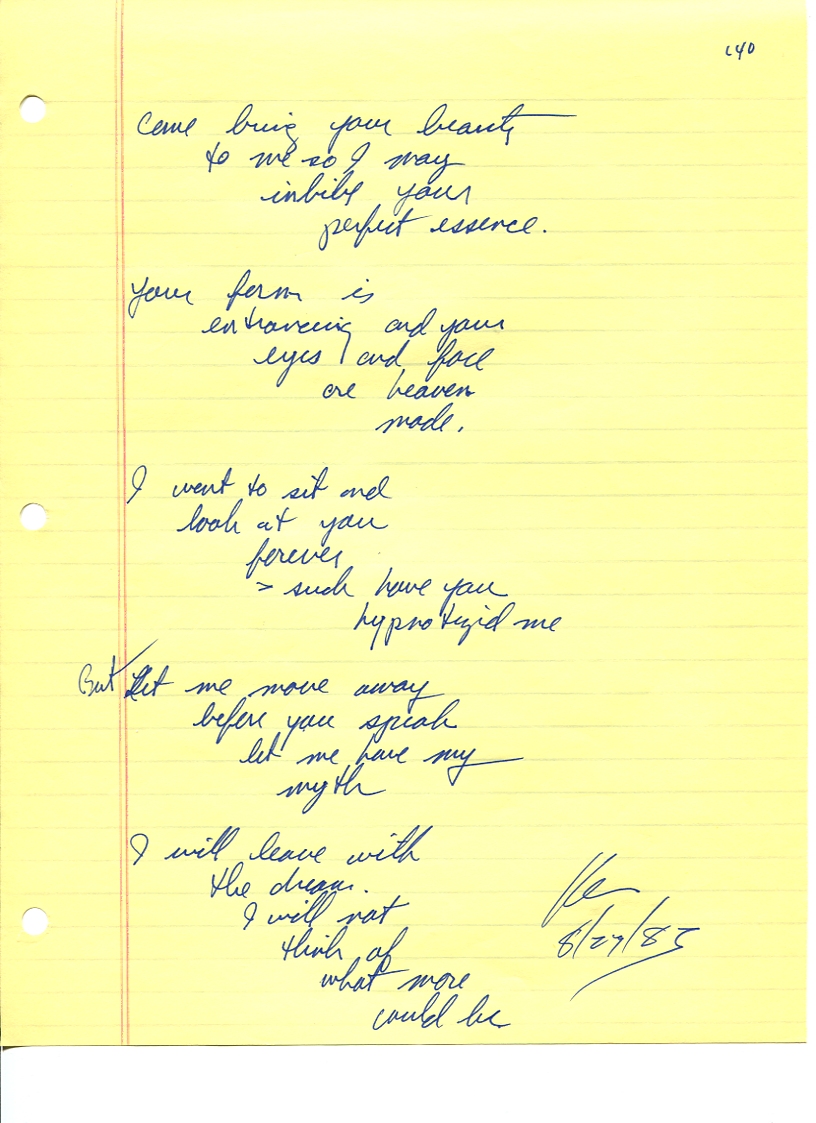 140
Come bring your beauty
to me so I may
inbibe your
perfect essence.
Your form is
entrancing and your
eyes and face
are heaven
made.
I want to sit and
look at you
forever
> such have you
hypnotized me
But let me move away
before you speak
let me have my
myth
I will leave with
the dream.
I will not
think of
what more
could be
Ken